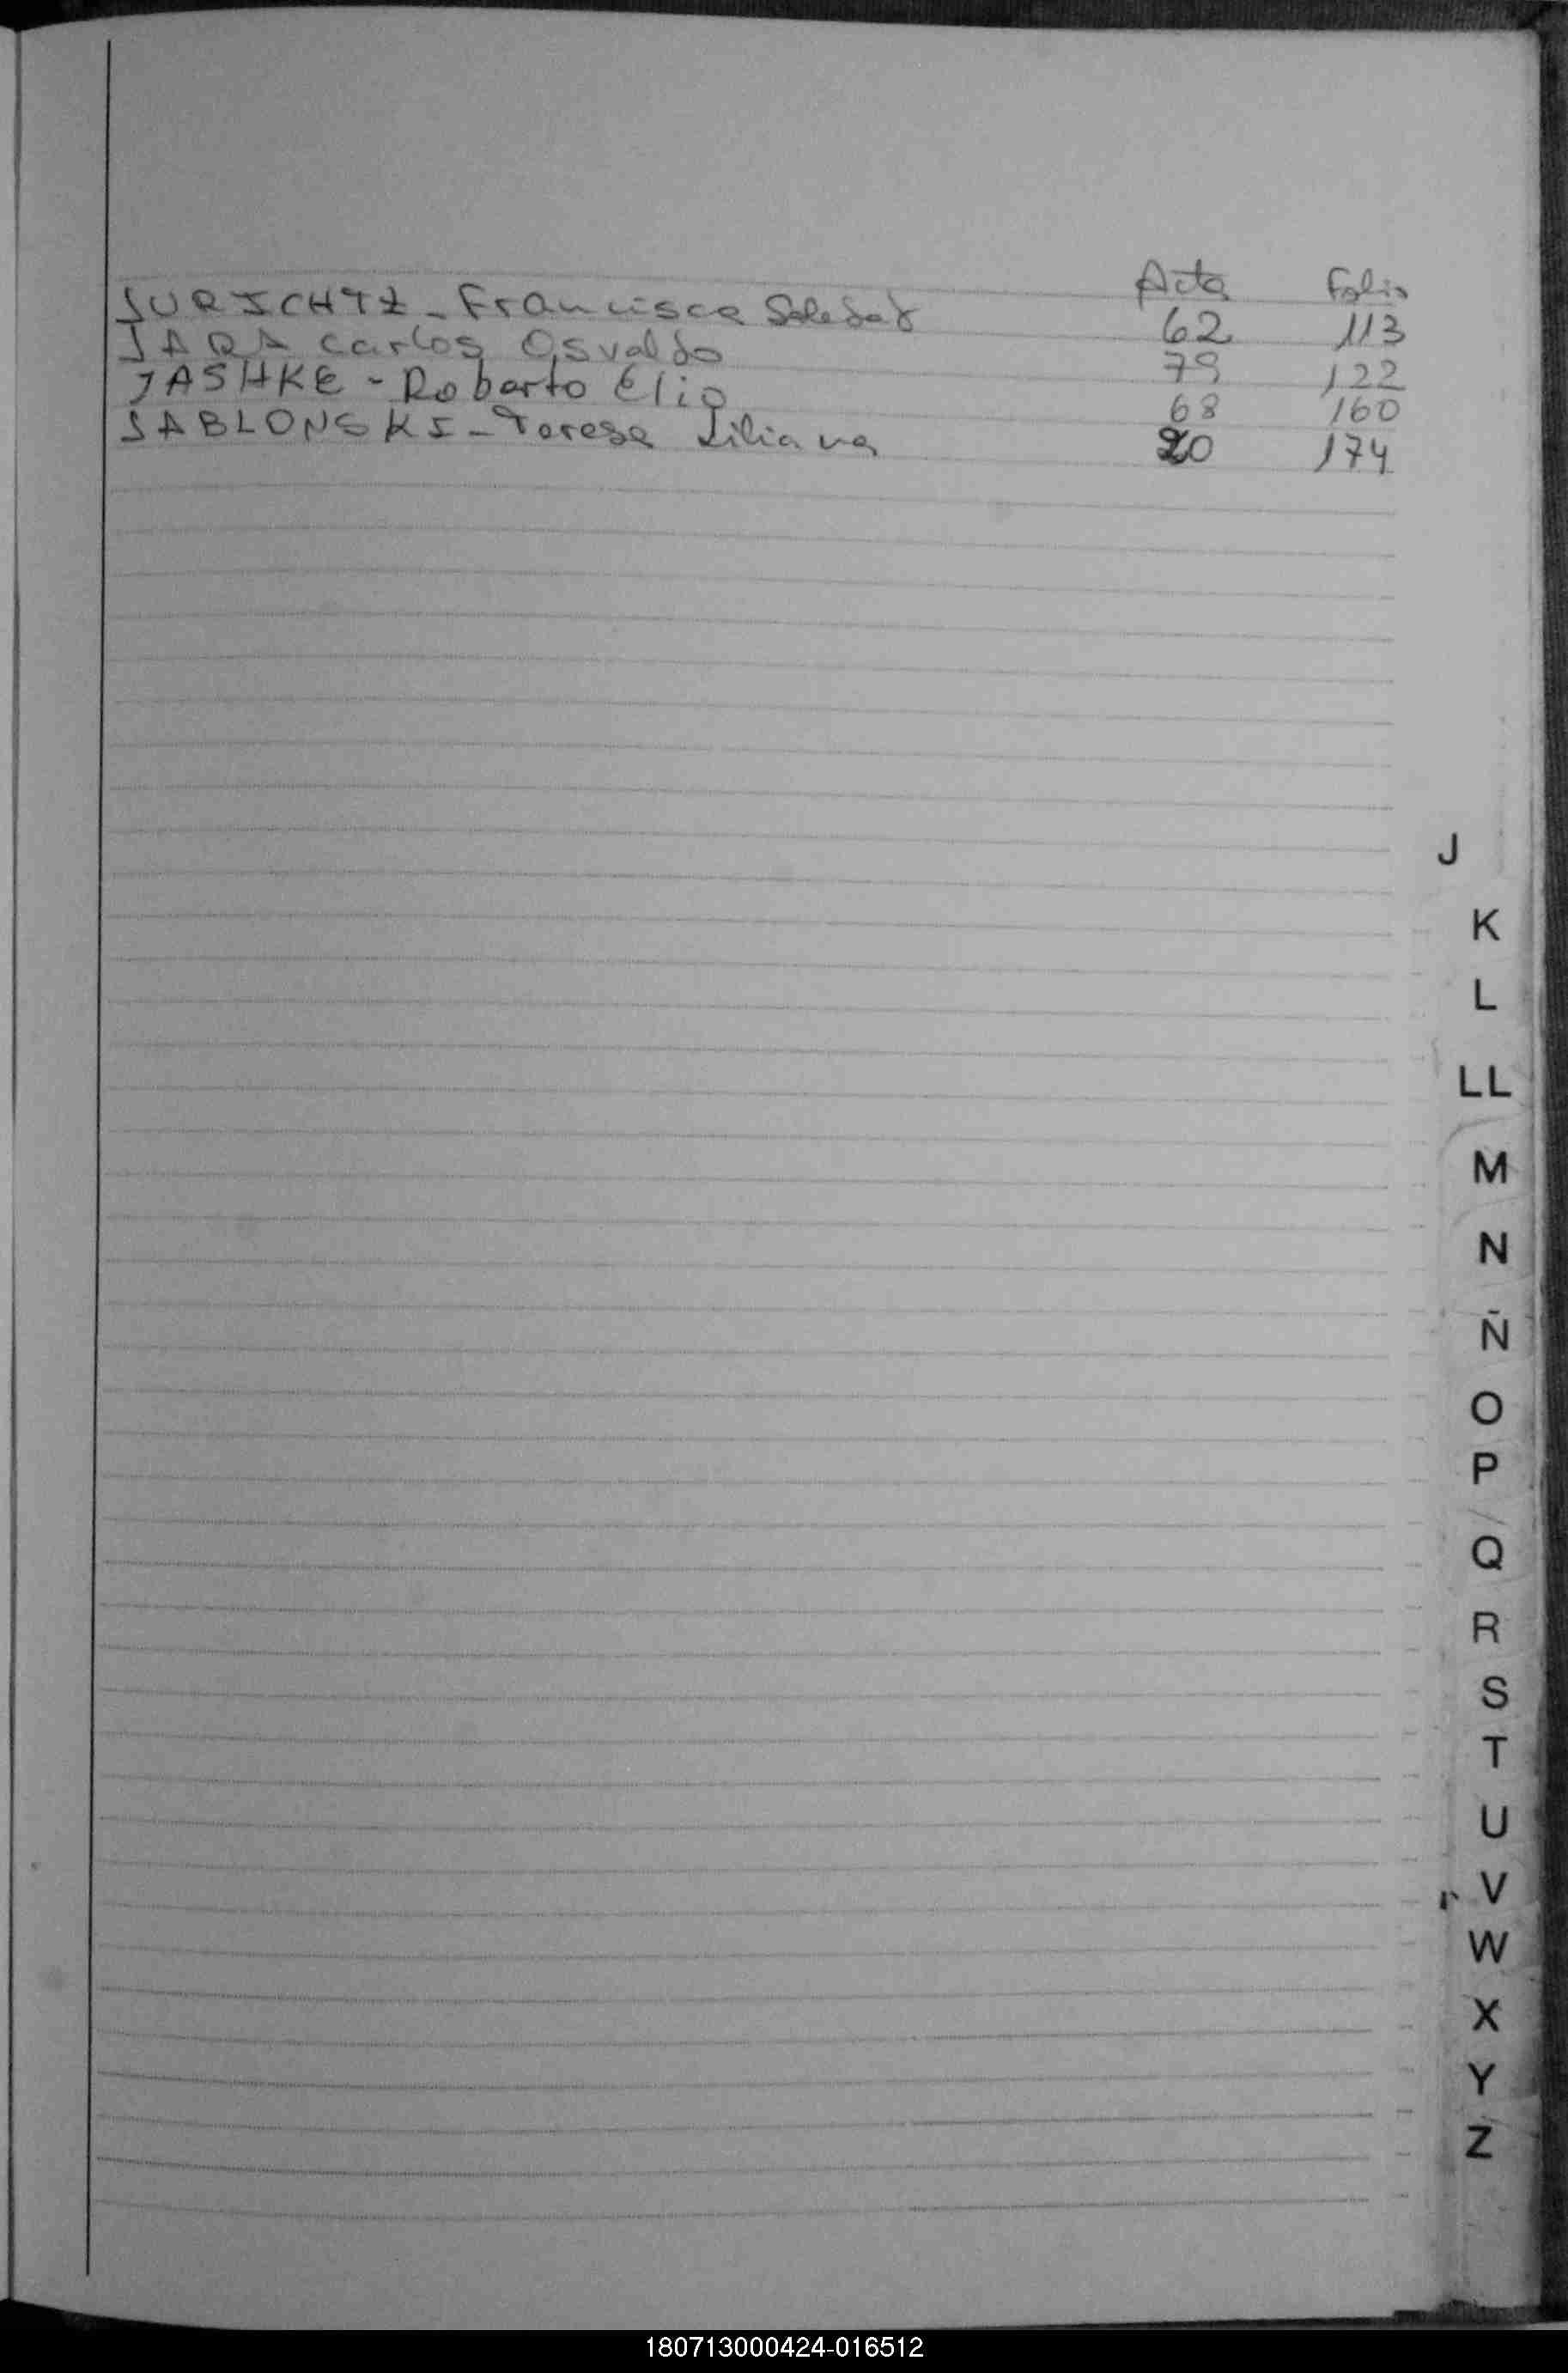 Acta Folio
JURICHTZ - Francisca Soledad 62 113
JARA Carlos Osvaldo 79 122
JASHKE - Roberto Elio 68 160
JABLONSKI - Teresa Liliana 20 174
J
K
L
LL
M
N
Ñ
O
P
Q
R
S
T
U
V
W
X
Y
Z
180713000424-016512